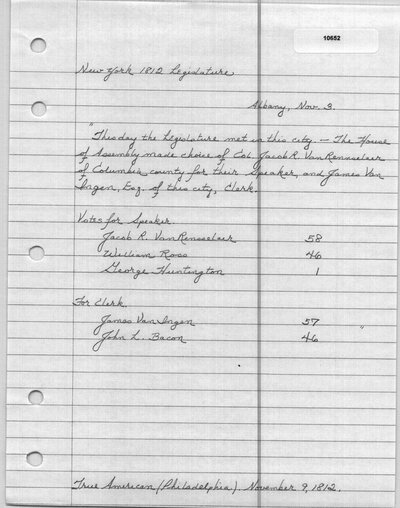 10652
New York 1812 Legislature
Albany, Nov. 3.
"This day the Legislature met in this city. — The House
of Assembly made choice of Col. Jacob R. Van Rensselaer
of Columbia county for their Speaker, and James Van
Ingen, Esq. of this city, Clerk.
Votes for Speaker
Jacob R. Van Rensselaer 58
William Ross 46
George Huntington 1
For Clerk
James Van Ingen 57 "
John L. Bacon 46
True American (Philadelphia). November 9, 1812.